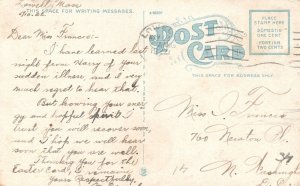 Lowell, Mass
THIS SPACE FOR WRITING MESSAGES.
POST CARD
PLACE
STAMP HERE
DOMESTIC
ONE CENT
FOREIGN
TWO CENTS
THIS SPACE FOR ADDRESS ONLY.
Dear Miss Francis:-
I have learned last
night from Harry of your
sudden illness, and I was
very much affected by that.
But knowing your ener
gy and hopeful spirit I
trust you will recover soon,
and I hope we will hear
soon that you are well.
Thanking you for the
Easter Card, I remain
yours Respectfully,
Miss J. Francis
760 Newton St.
N.